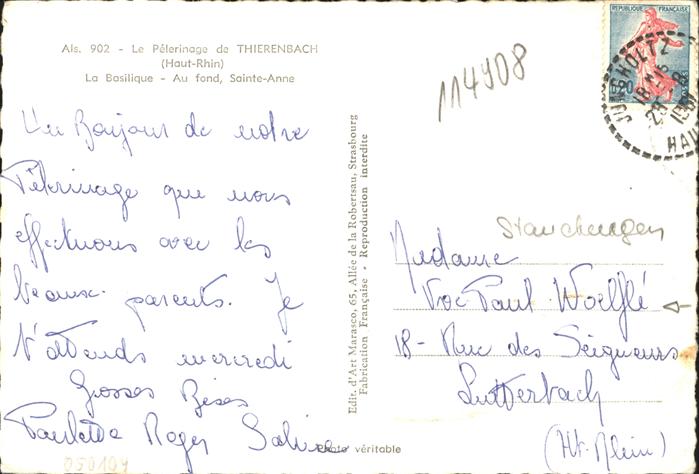 Als. 902 - Le Pèlerinage de THIERENBACH
(Haut-Rhin)
La Basilique - Au fond, Sainte-Anne
Un Bonjour de notre
Pèlerinage que nous
effectuons avec les
beaux-parents. Je
t'attends mercredi
Grosses Bises
Paulette Roger Sabine
Photo véritable
050104
Edit. d'Art Marasco, 65, Allée de la Robertsau, Strasbourg
Fabrication Française - Reproduction interdite
114908
REPUBLIQUE FRANÇAISE
0,20
JUNGHOLTZ
18H15
28-8
HAU
Madame
Vve Paul Woelflé
18 - Rue des Seigneurs
Lutterbach
(Ht. Rhin)